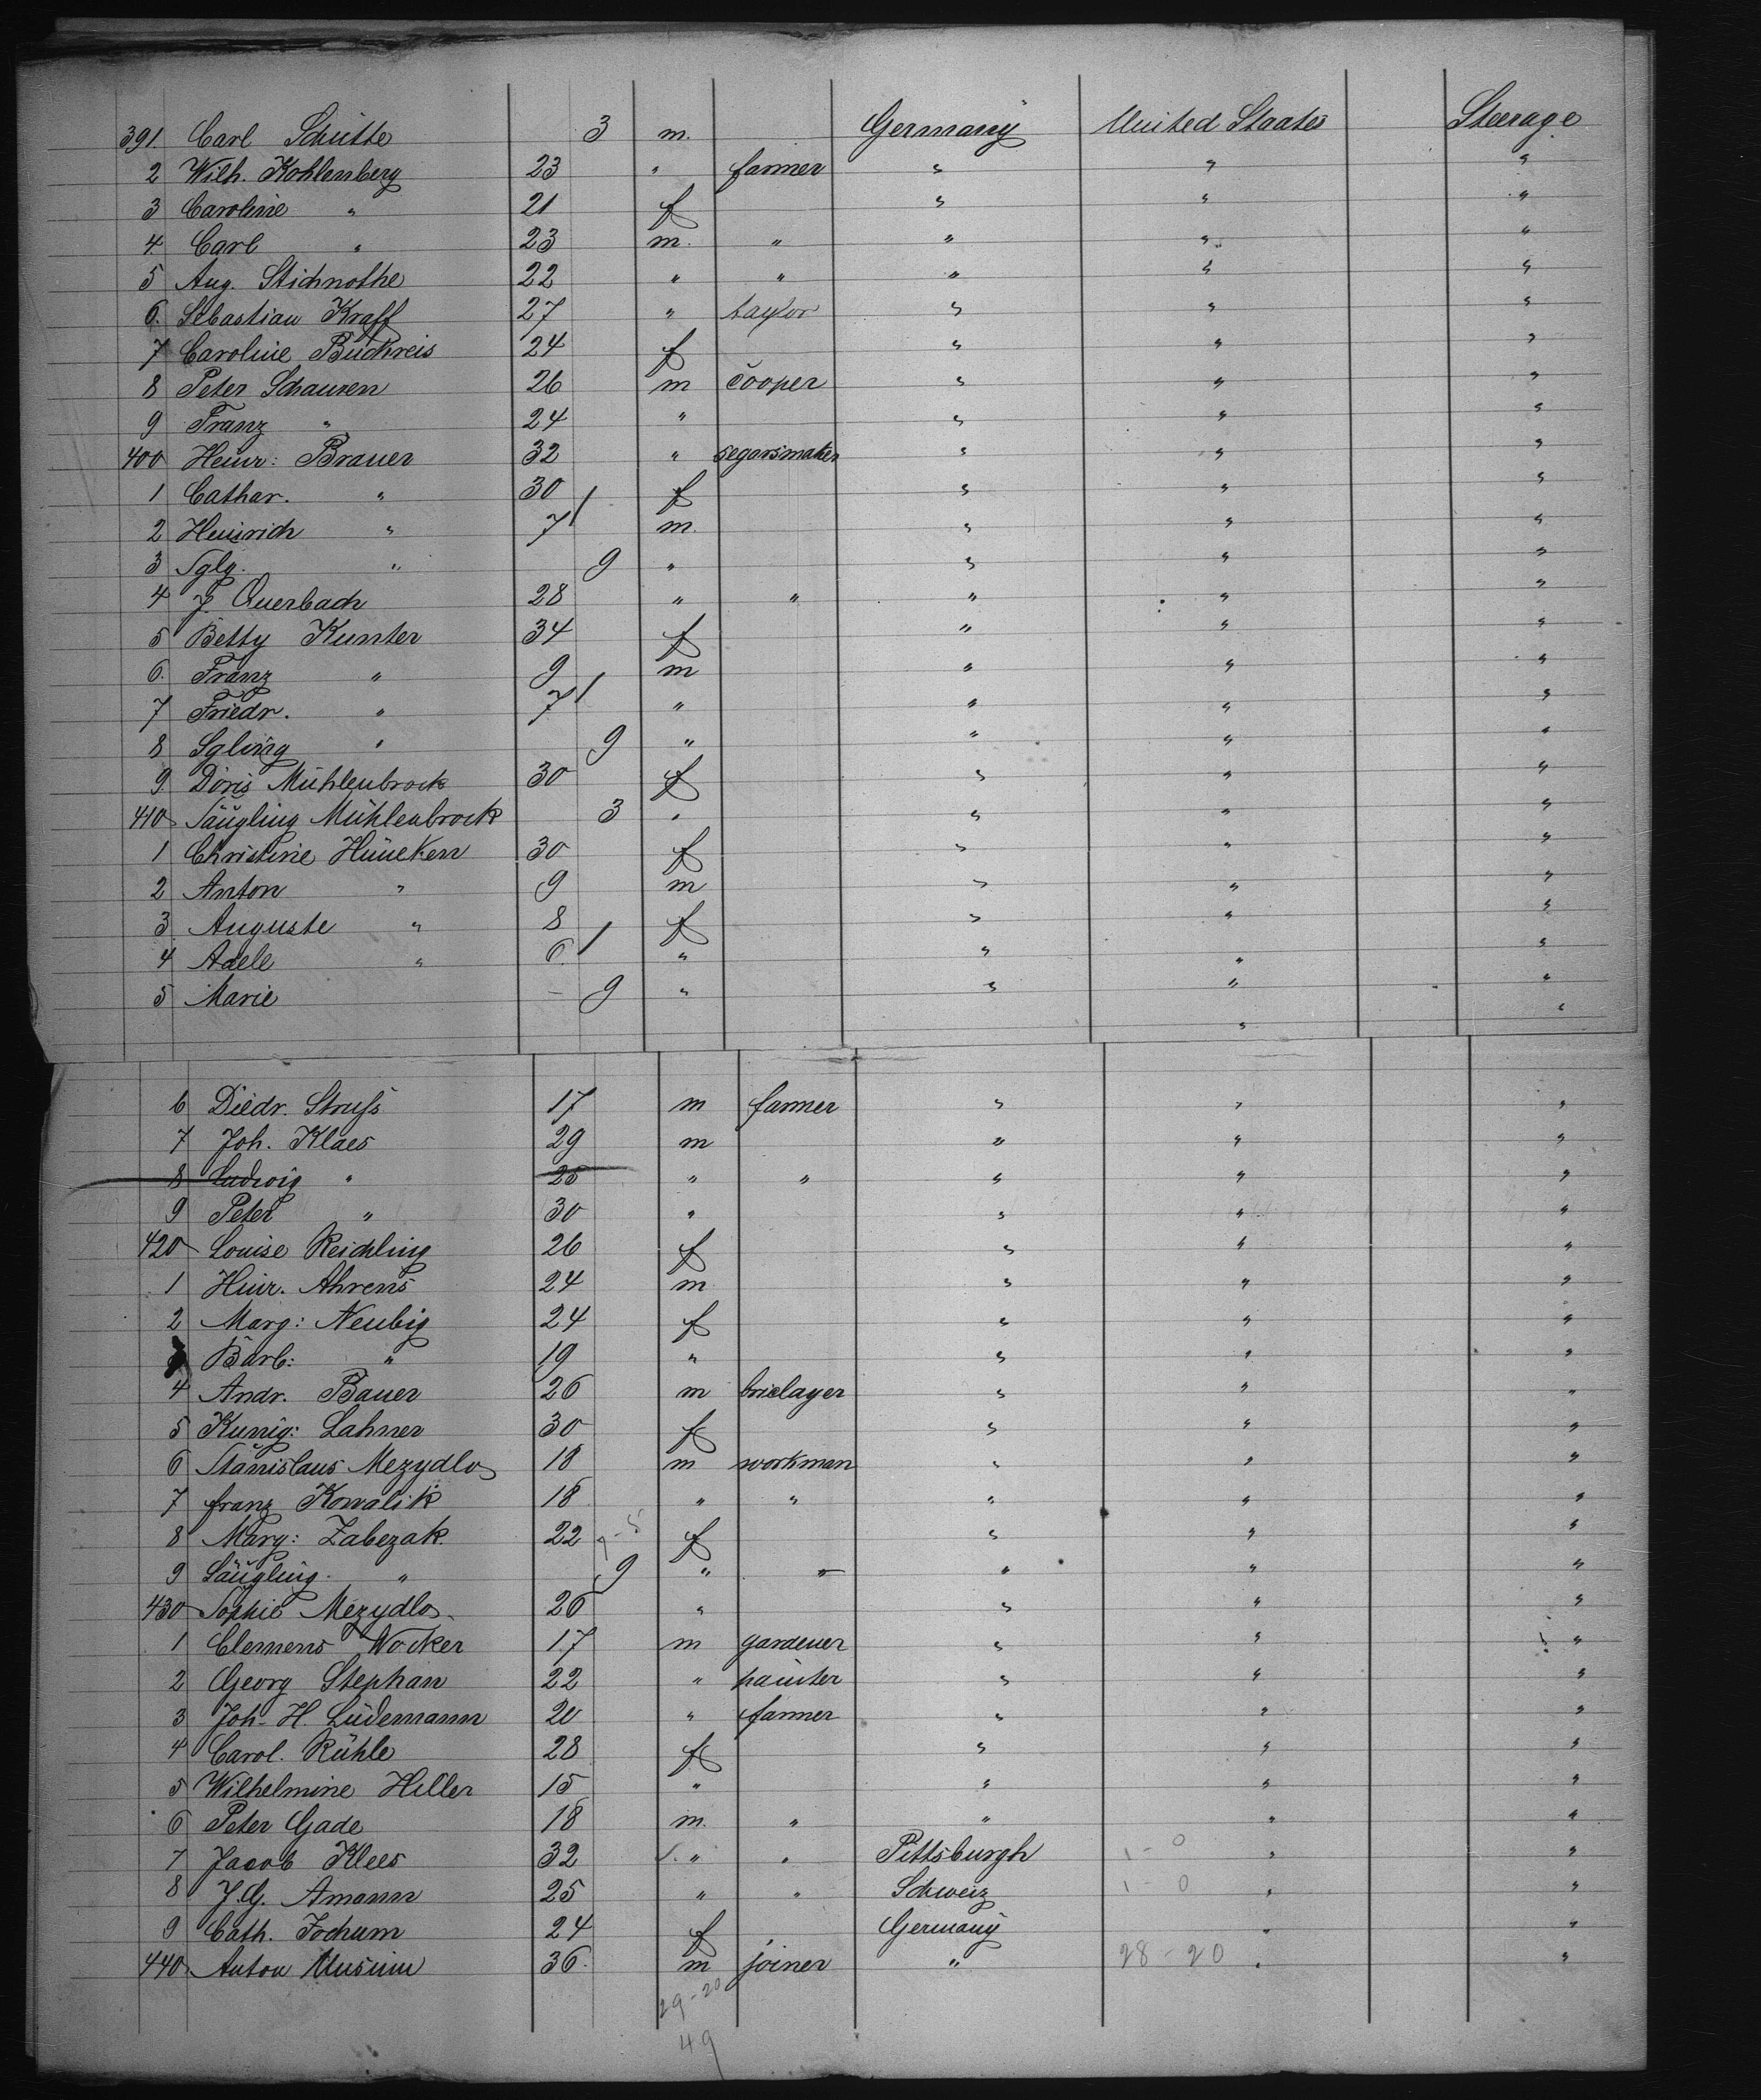 391. Carl Schütte 3 m. Germany United Staates Steerage
2 Wilh. Kohlenberg 23 " farmer " " "
3 Caroline " 21 f " " "
4. Carl " 23 m. " " " "
5 Aug. Stichnothe 22 " " " " "
6. Sebastian Kraff 27 " taylor " " "
7 Caroline Büchreis 24 f " " "
8 Peter Schauren 26 m cooper " " "
9 Franz " 24 " " " "
400 Heinr: Brauer 32 " segarsmaker " " "
1 Cathar. " 30 f " " "
2 Heinrich " 7 / m. " " "
3 Sglg. " 9 " " " "
4 J. Querbach 28 " " " " "
5 Betty Kunter 34 f " " "
6. Franz " 9 m " " "
7 Friedr. " 7 / " " " "
8 Sgling " 9 " " " "
9. Doris Mühlenbrock 30 f " " "
410 Säugling Mühlenbrock 3 " " " "
1 Christine Hüneken 30 f " " "
2 Anton " 9 m " " "
3 Auguste " 8 f " " "
4. Adele " 6. / " " " "
5 Marie - 9 " " " "
" "
6 Diedr. Struß 17 m farmer " " "
7 Joh. Klaes 29 m " " "
8 Ludwig " 25 " " " " "
9 Peter " 30 " " " "
420 Louise Reichling 26 f " " "
1 Heinr. Ahrens 24 m " " "
2 Marg: Neubig 24 f " " "
3 Barb: " 19 " " " "
4 Andr. Bauer 26 m briclayer " " "
5 Kunig: Lahner 30 f " " "
6 Stanislaus Mezydlo 18 m workman " " "
7 franz Kowalik 18 " " " " "
8 Marg: Zabezak. 22 f " " "
9 Säugling " 9 " " " " "
430 Sophie Mezydlo 26 " " " "
1 Clemens Wocker 17 m gardener " " "
2 Georg Stephan 22 " painter " " "
3 Joh. H. Lüdemann 20 " farmer " " "
4 Carol. Rühle 28 f " " "
5 Wilhelmine Heller 15 " " " "
6 Peter Gade 18 m. " " " "
7 Jacob Klees 32 " " Pittsburgh 1-0 " "
8 J.G. Amann 25 " " Schweiz 1-0 " "
9 Cath. Jochum 24 f Germany " "
440 Anton 36. m joiner " 28-20 " "
29-20
49